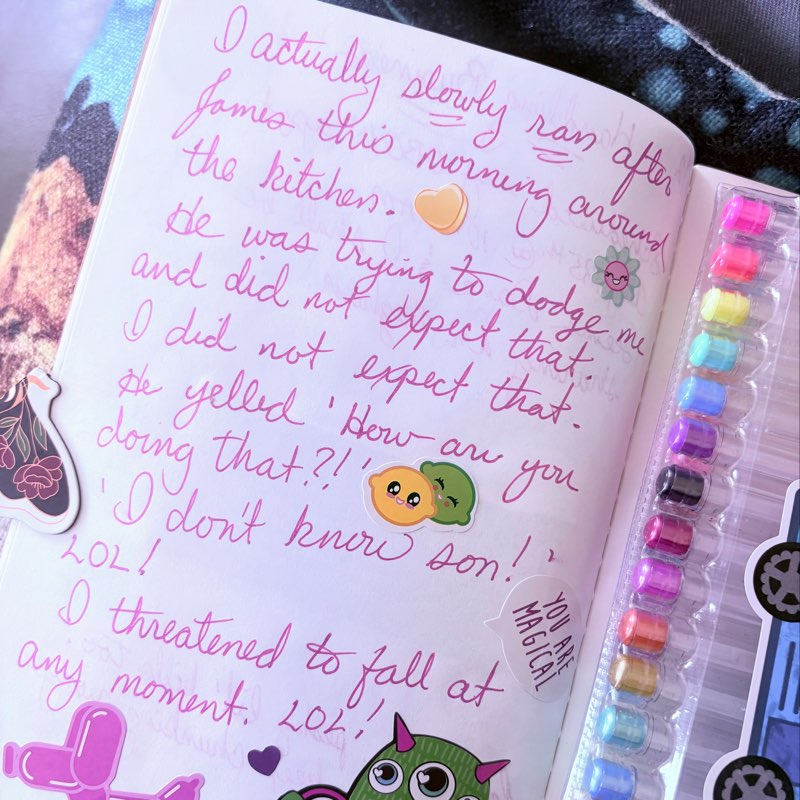 I actually slowly ran after
James this morning around
the kitchen.
He was trying to dodge me
and did not expect that.
I did not expect that.
He yelled 'How are you
doing that?!'
'I don't know son!'
LOL!
I threatened to fall at
any moment. LOL!
YOU ARE
MAGICAL